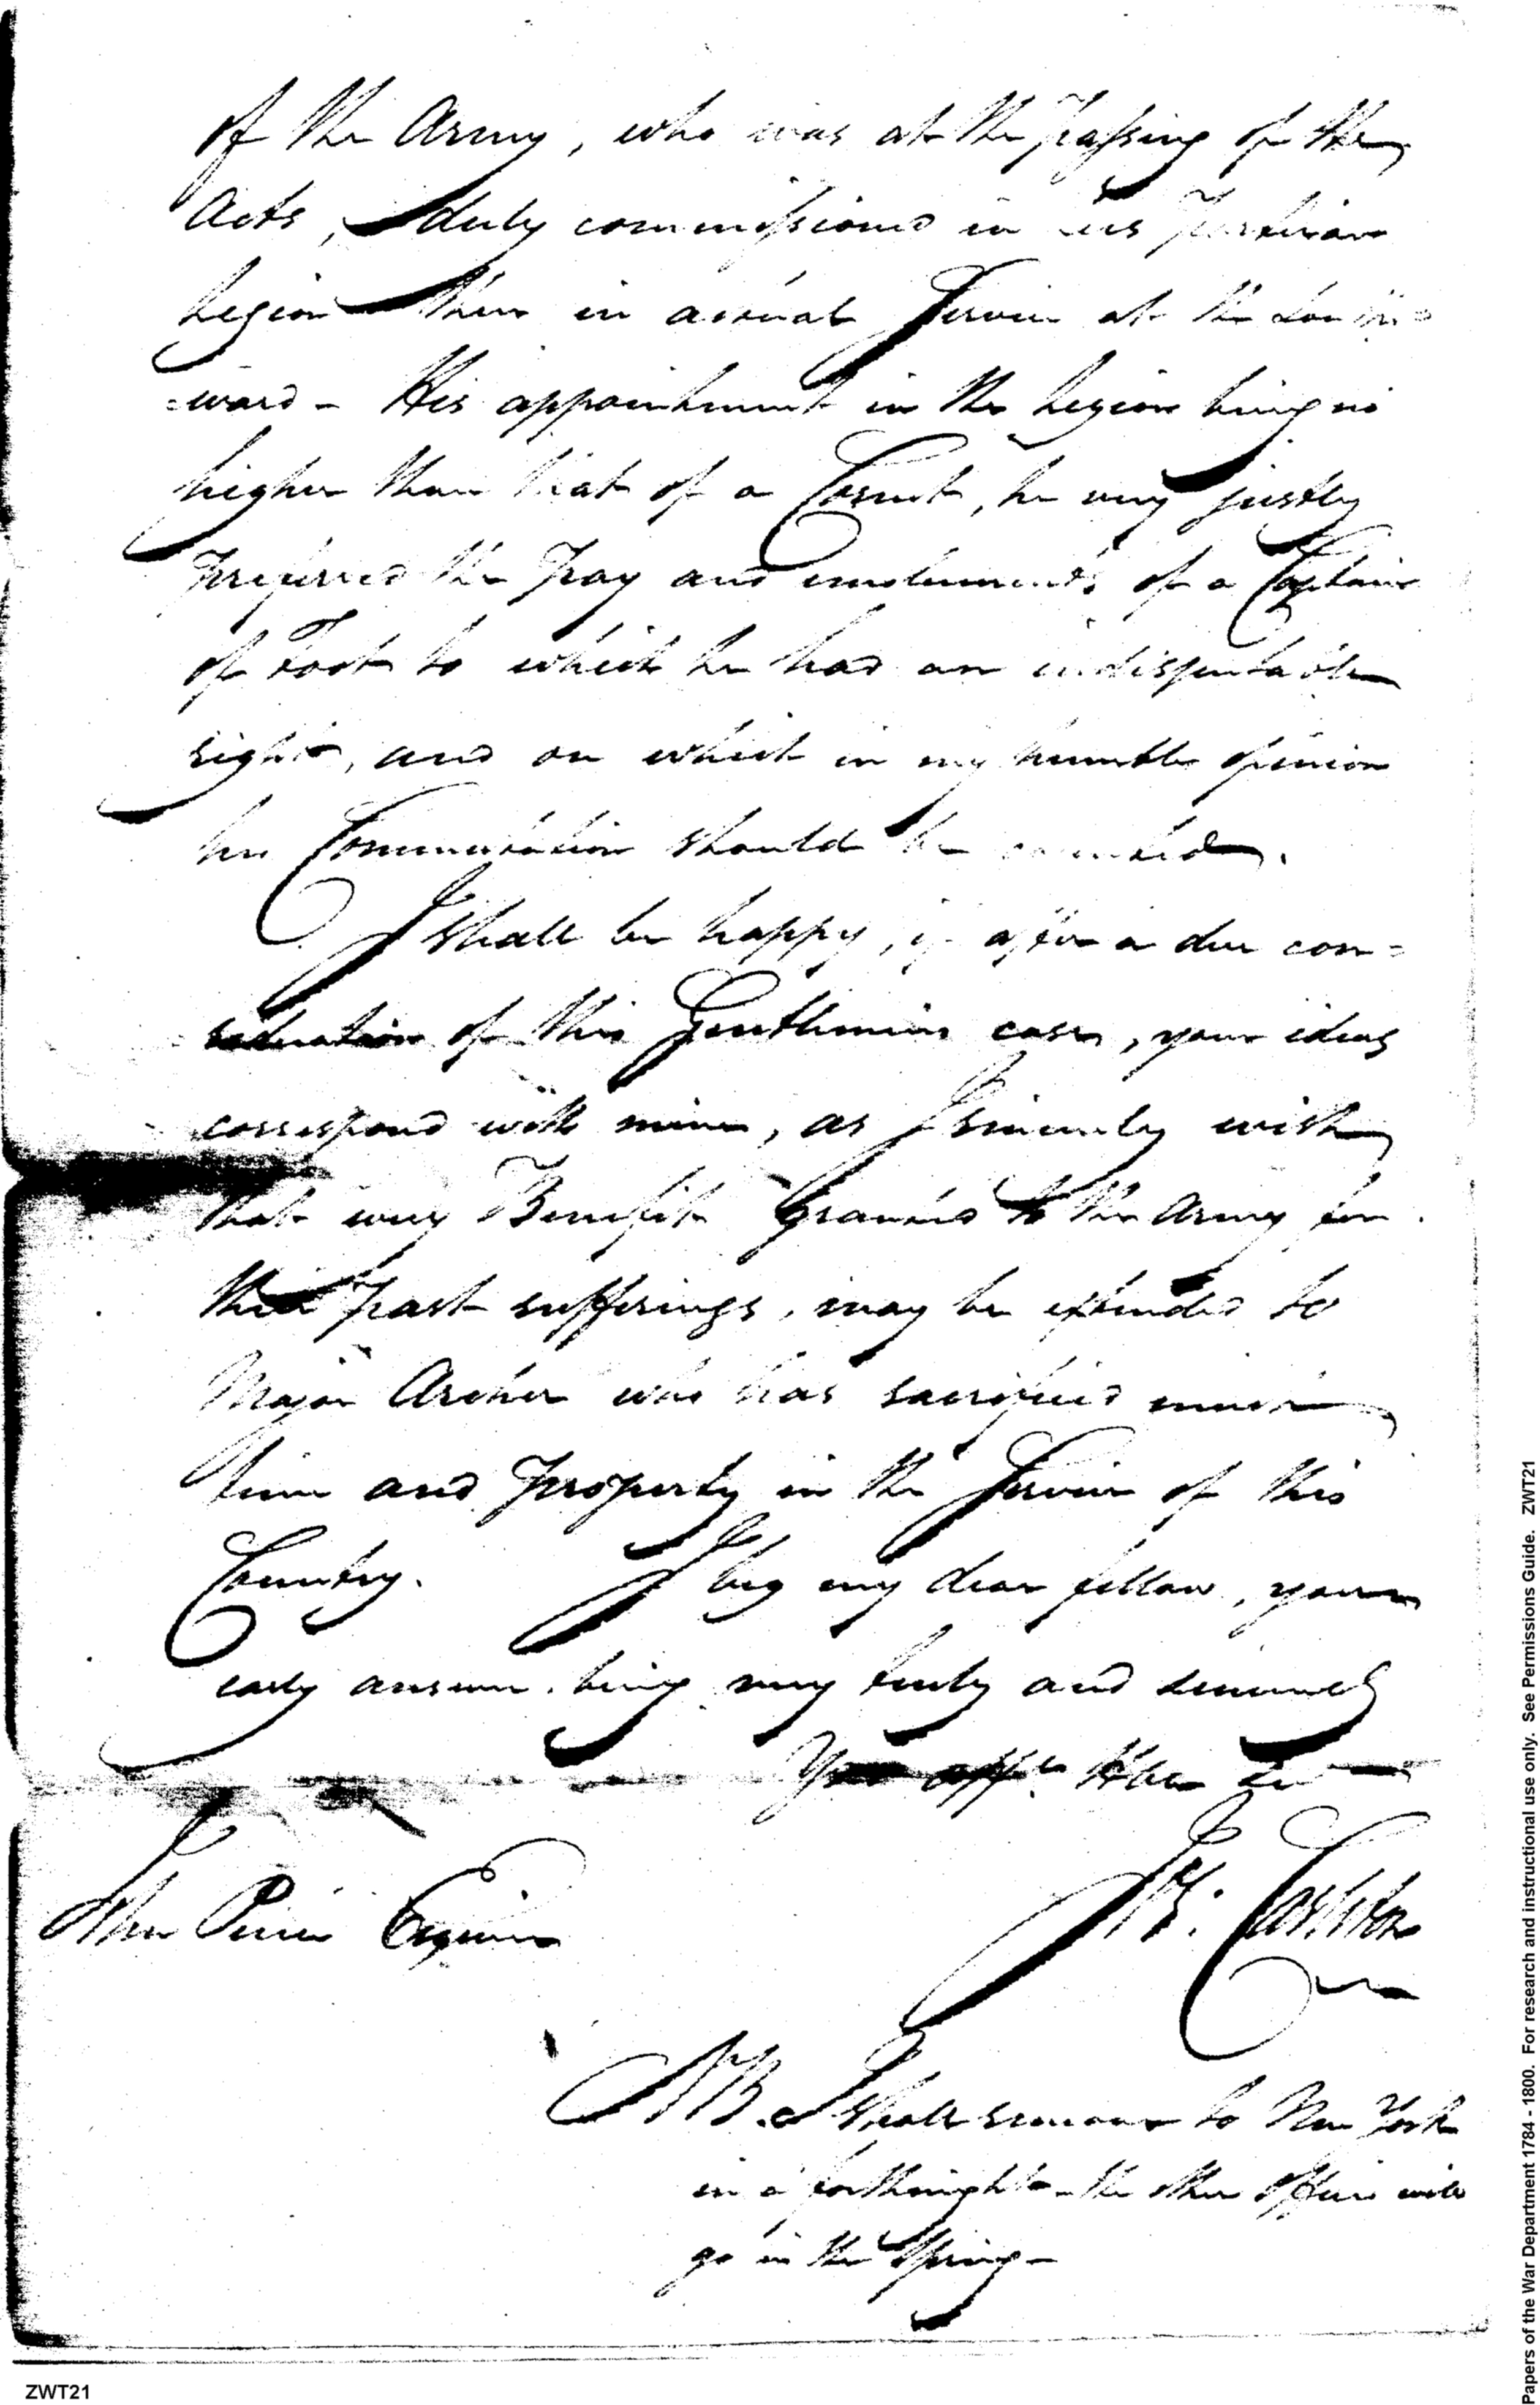 of the Army, who was at the passing of the
Acts, duly commissioned in his partizan
Legion then in actual Service at the South=
=ward - His appointment in the Legion being no
higher than that of a Cornet, he very justly
preferred the Pay and emoluments of a Captain
of Foot to which he had an indisputable
right, and on which in my humble opinion
his Commutation should be
I shall be happy, if after a due con=
sideration of this Gentlemans case, your ideas
correspond with mine, as I sincerely wish
that every Benefit granted to the Army for
their past sufferings, may be extended to
Major Archer who has sacrificed much
time and Property in the Service of this
Country. I beg my dear fellow, your
early answer, being very truly and sincerely
Your affte. Hble Ser
John Pierce Esquire
J. Carleton
NB. I shall remove to New York
in a forthnight - the other Offices will
go in the Spring -
ZWT21
Papers of the War Department 1784 - 1800. For research and instructional use only. See Permissions Guide. ZWT21